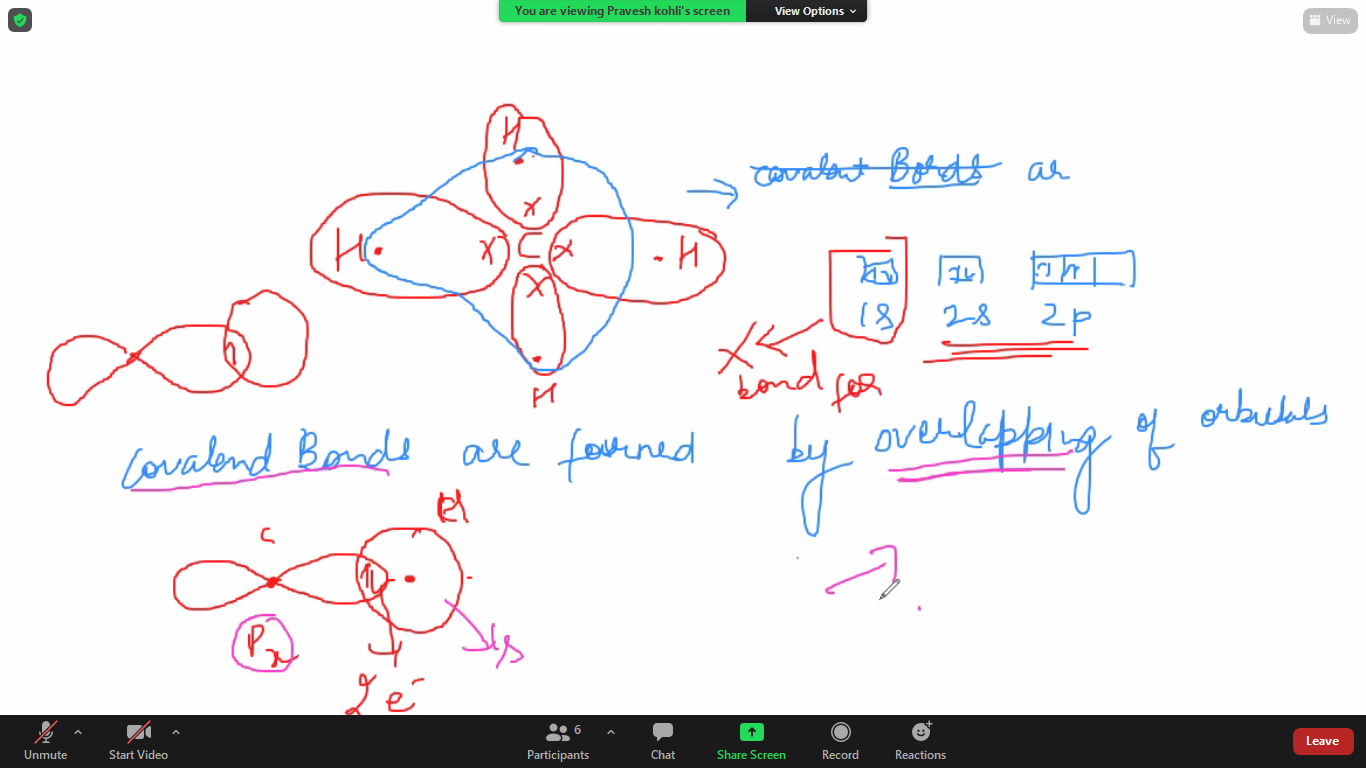 You are viewing Pravesh kohli's screen View Options
View
H
→ covalent Bonds ar
H x x C x H
x
1s 2s 2p
x bond for
H
Covalend Bonds are formed by overlapping of orbitals
C H
Px 1s
2e-
Unmute Start Video Participants 6 Chat Share Screen Record Reactions Leave